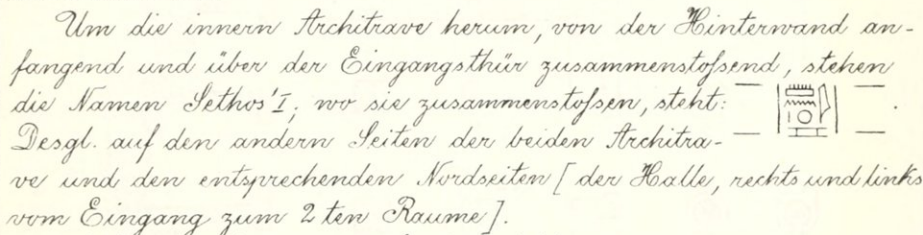 Um die innern Architrave herum, von der Hinterwand an-
fangend und über der Eingangsthür zusammenstoſsend, stehen
die Namen Sethos' I; wo sie zusammenstoſsen, steht:
Desgl. auf den andern Seiten der beiden Architra-
ve und den entsprechenden Nordseiten [der Halle, rechts und links
vom Eingang zum 2ten Raume].